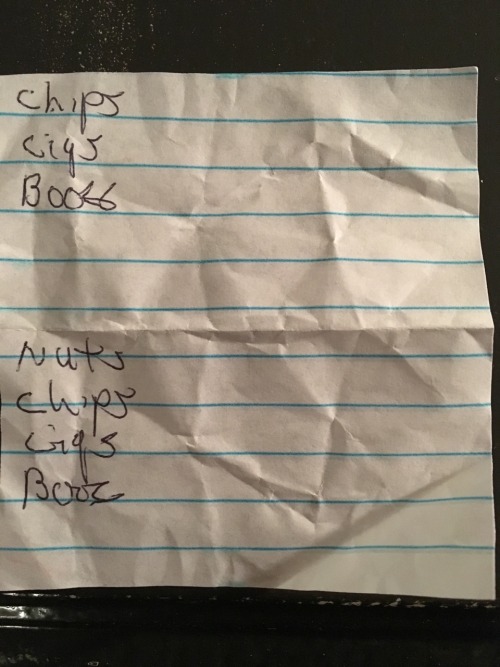 Chips
Cigs
Booze
Nuts
Chips
Cigs
Booze